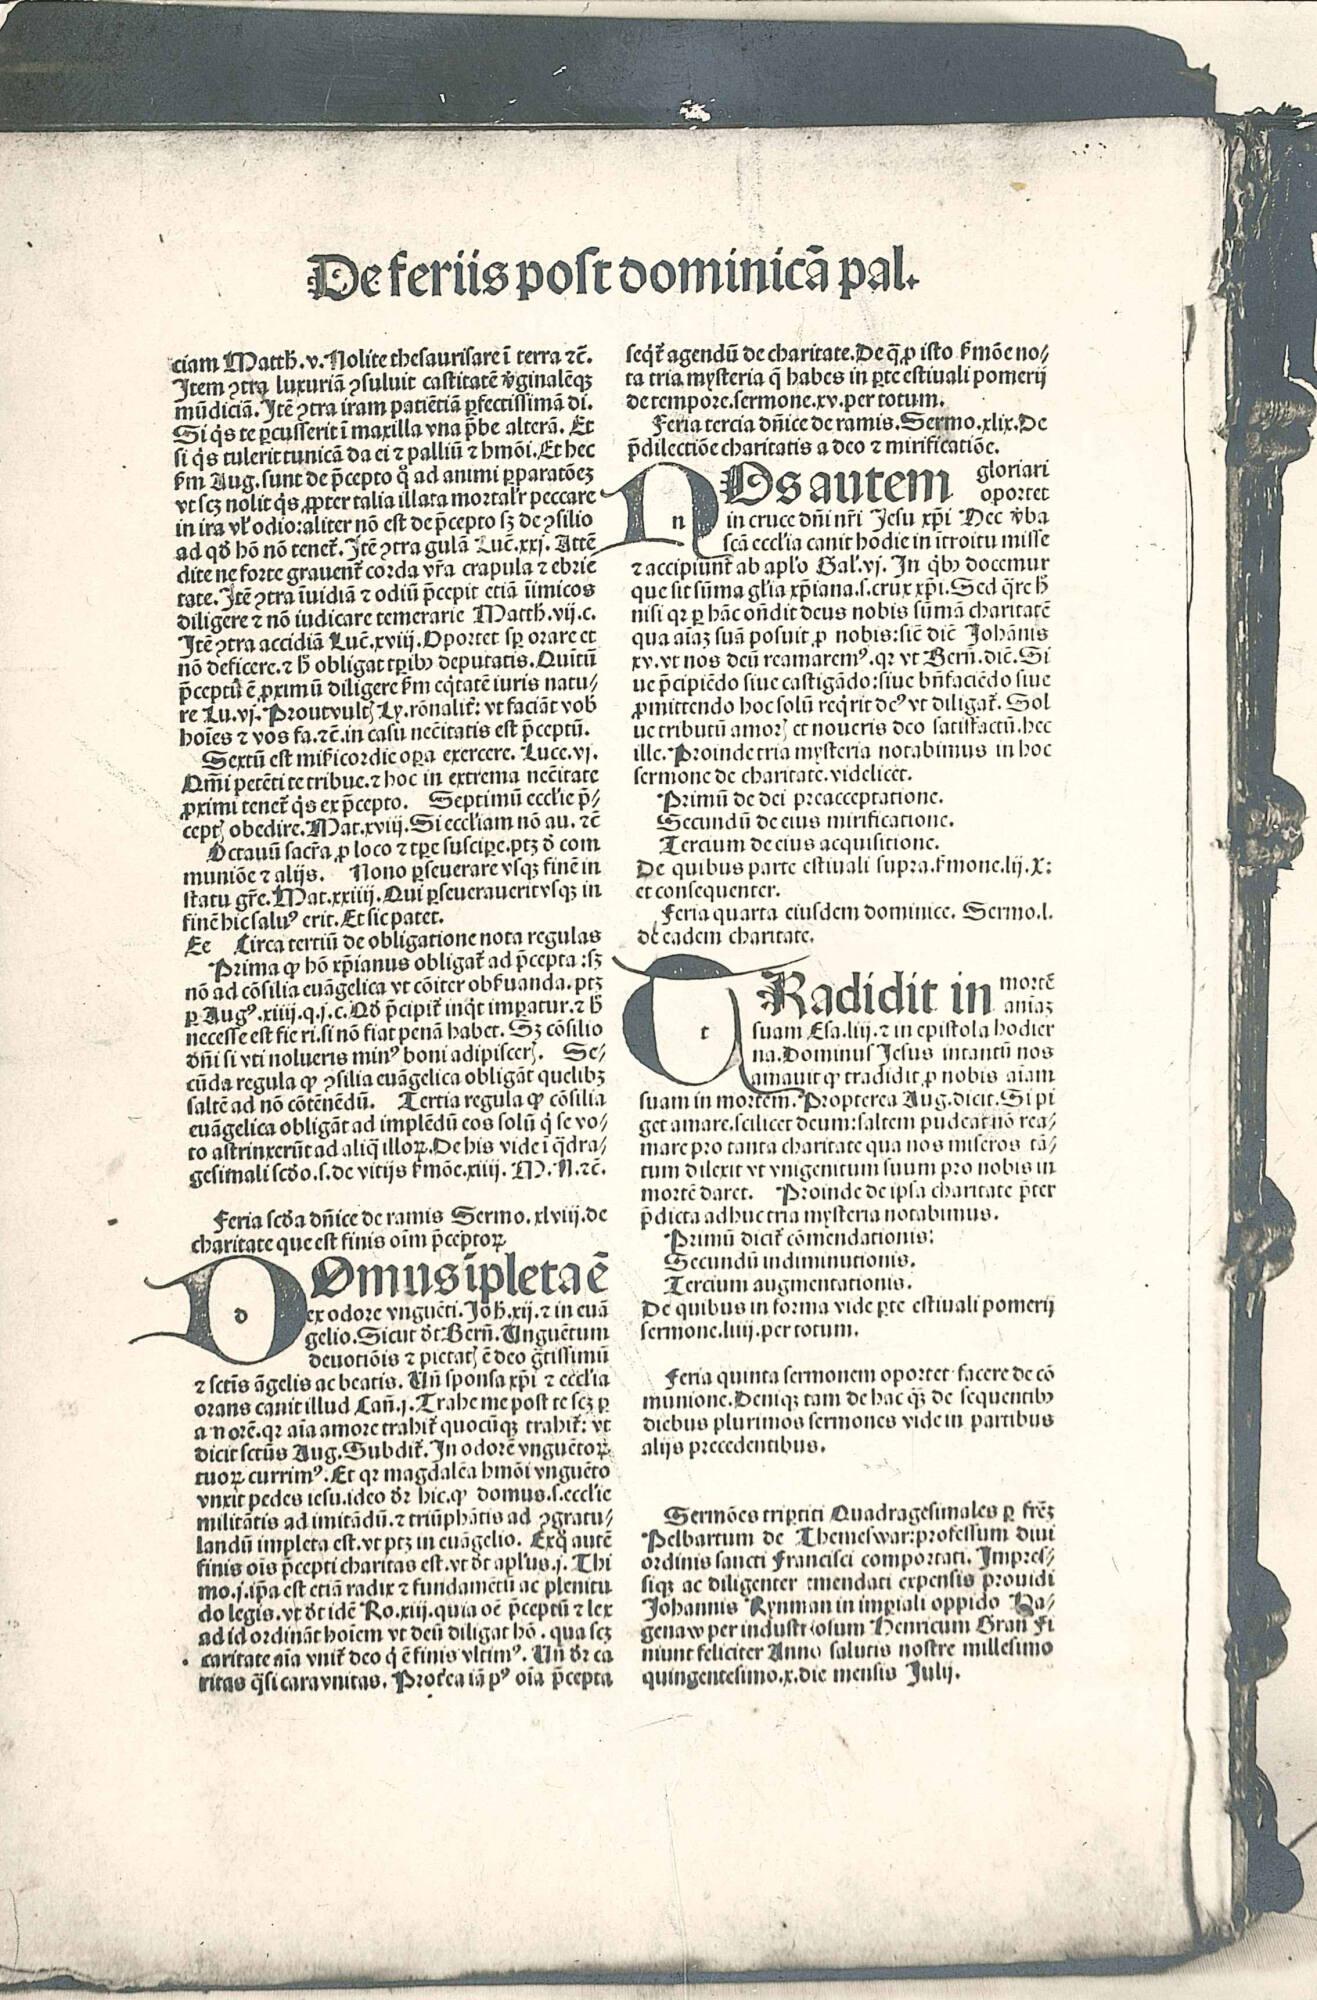 De feriis post dominicã pal.
ciam Matth. v. Nolite thesaurisare ĩ terra ⁊c̃.
Item ꝯtra luxuriã ꝯsuluit castitatẽ v̓ginalẽqꝫ
mũdiciã. Itẽ ꝯtra iram patiẽtiã ꝑfectissimã di.
Si q̓s te ꝑcusserit ĩ maxilla vna p̃be alterã. Et
si q̓s tulerit tunicã da ei ⁊ palliũ ⁊ hmõi. Et hec
ẜm Aug. sunt de p̃cepto q̊ ad animi p̃paratõeꝫ
vt scꝫ nolit q̓s ꝓpter talia illata mortalr̃ peccare
in ira vl̓ odio: aliter nõ est de p̃cepto sꝫ de ꝯsilio
ad qđ hõ nõ tenet̃. Itẽ ꝯtra gulã Luc̃. xxj. Attẽ
dite ne forte grauent̃ corda vr̃a crapula ⁊ ebrie
tate. Itẽ ꝯtra ĩuidiã ⁊ odiũ p̃cepit etiã ĩimicos
diligere ⁊ nõ iudicare temerarie Matth. vij. c.
Itẽ ꝯtra accidiã Luc̃. xviij. Oportet sꝑ orare et
nõ deficere. ⁊ h̓ obligat tꝑibꝰ deputatis. Quĩtũ
p̃ceptũ ẽ ꝓximũ diligere ẜm eq̓tatẽ iuris natu/
re Lu. vj. Prout vultꝭ Ly. rõnalit̃: vt faciãt vob̓
hoĩes ⁊ vos fa. ⁊c̃. in casu necĩtatis est p̃ceptũ.
Sextũ est mĩẜicordie oꝑa exercere. Luce. vj.
Om̃i petẽti te tribue. ⁊ hoc in extrema nec̃itate
ꝓximi tenet̃ q̓s ex p̃cepto. Septimũ eccl̓ie p̃/
ceptꝭ obedire. Mat. xviij. Si eccl̓iam nõ au. ⁊c̃
Octauũ sacr̃a ꝓ loco ⁊ tꝑe suscipe. ptꝫ đ com
muniõe ⁊ alijs. Nono ꝑseuerare vsqꝫ finẽ in
statu gr̃e. Mat. xxiiij. Qui ꝑseuerauerit vsqꝫ in
finẽ hic saluꝰ erit. Et sic patet.
Ee Circa tertiũ de obligatione nota regulas
Prima ꝙ hõ xp̃ianus obligat̃ ad p̃cepta: sꝫ
nõ ad cõsilia euãgelica vt cõiter obẜuanda. ptꝫ
ꝑ Augꝰ. xiiij. q. j. c. Qđ p̃cipit̃ inq̓t imꝑatur. ⁊ h̓
necesse est fieri. si nõ fiat penã habet. Sꝫ cõsilio
dñi si vti nolueris minꝰ boni adipiscerꝭ. Se/
cũda regula ꝙ ꝯsilia euãgelica obligãt quelibꝫ
saltẽ ad nõ cõtẽnẽdũ. Tertia regula ꝙ cõsilia
euãgelica obligãt ad implẽdũ eos solũ q̓ se vo/
to astrinxerũt ad aliq̓ illoꝝ. De his vide ĩ q̃dra/
gesimali scđo. s. de vitijs ẜmõe. xiiij. M. N. ⁊c̃.
Feria scđa dñice de ramis Sermo. xlviij. de
charitate que est finis oĩm p̃ceptoꝝ
DOmus ĩpleta ẽ
d
ex odore vnguẽti. Joh̓. xij. ⁊ in euã
gelio. Sicut đt Bern̄. Unguẽtum
deuotiõis ⁊ pietatꝭ ẽ deo g̃tissimũ
⁊ sctĩs ãgelis ac beatis. Uñ sponsa xp̃i ⁊ eccl̓ia
orans canit illud Can̄. j. Trahe me post te scꝫ ꝑ
amorẽ. qꝛ aĩa amore trahit̃ quocũqꝫ trahit̃: vt
dicit sctũs Aug. Subdit̃. In odorẽ vnguẽtoꝝ
tuoꝝ currimꝰ. Et qꝛ magdalẽa hmõi vnguẽto
vnxit pedes iesu. ideo đr hic. ꝙ domus. s. eccl̓ie
militãtis ad imitãdũ. ⁊ triũphãtis ad ꝯgratu/
landũ impleta est. vt ptꝫ in euãgelio. Exq̊ autẽ
finis oĩs p̃cepti charitas est. vt đt apl̓us. j. Thi
mo. j. ip̃a est etiã radix ⁊ fundamẽtũ ac plenitu
do legis. vt đt idẽ Ro. xiij. quia oẽ p̃ceptũ ⁊ lex
ad id ordinãt hoĩem vt deũ diligat hõ. qua scꝫ
caritate aĩa vnit̃ deo q̓ ẽ finis vltimꝰ. Uñ đr ca
ritas q̃si cara vnitas. Prot̃ea iã pꝰ oĩa p̃cepta
seqt̃ agendũ de charitate. De q̃ ꝓ isto ẜmõe no/
ta tria mysteria q̃ habes in ꝑte estiuali pomerij
de tempore. sermone. xv. per totum.
Feria tercia dñice de ramis. Sermo. xlix. De
p̃dilectiõe charitatis a deo ⁊ mirificatiõe.
NOs autem gloriari
oportet
n
in cruce dñi nr̃i Jesu xp̃i Hec v̓ba
scã eccl̓ia canit hodie in ĩtroitu misse
⁊ accipiunt̃ ab apl̓o Gal̓. vj. In q̓bꝰ docemur
que sit sũma gl̓ia xp̃iana. s. crux xp̃i. Sed q̃re h̓
nisi qꝛ ꝑ hãc oñdit deus nobis sũmã charitatẽ
qua aĩaꝫ suã posuit ꝓ nobis: sic̃ dic̃ Johãnis
xv. vt nos deũ reamaremꝰ. qꝛ vt Bern̄. dic̃. Si
ue p̃cipiẽdo siue castigãdo: siue bñfaciẽdo siue
ꝓmittendo hoc solũ req̓rit deꝰ vt diligat̃. Sol
ue tributũ amorꝭ et noueris deo satisfactũ. hec
ille. Proinde tria mysteria notabimus in hoc
sermone de charitate. videlicet.
Primũ de dei preacceptatione.
Secundũ de eius mirificatione.
Tercium de eius acquisitione.
De quibus parte estiuali supra. ẜmone. lij. X:
et consequenter.
Feria quarta eiusdem dominice. Sermo. l.
de eadem charitate.
TRadidit in mortẽ
aniaꝫ
t
suam Esa. liij. ⁊ in epistola hodier
na. Dominus Jesus intantũ nos
amauit ꝙ tradidit ꝓ nobis aĩam
suam in mortem. Propterea Aug. dicit. Si pi
get amare. scilicet deum: saltem pudeat nõ rea/
mare pro tanta charitate qua nos miseros tã/
tum dilexit vt vnigenitum suum pro nobis in
mortẽ daret. Proinde de ipsa charitate p̃ter
p̃dicta adhuc tria mysteria notabimus.
Primũ dicit̃ cõmendationis:
Secundũ indiminutionis.
Tercium augmentationis.
De quibus in forma vide ꝑte estiuali pomerij
sermone. liiij. per totum.
Feria quinta sermonem oportet facere de cõ
munione. Deniqꝫ tam de hac q̃ꝫ de sequentibꝰ
diebus plurimos sermones vide in partibus
alijs precedentibus.
Sermões triꝑtiti Quadragesimales ꝑ fr̃eꝫ
Pelbartum de Themeswar: professum diui
ordinis sancti Francisci comportati. Impres/
siqꝫ ac diligenter emendati expensis prouidi
Johannis Rynman in imꝑiali oppido Ha/
genaw per industriosum Henricum Gran Fi
niunt feliciter Anno salutis nostre millesimo
quingentesimo. x. die mensis Julij.